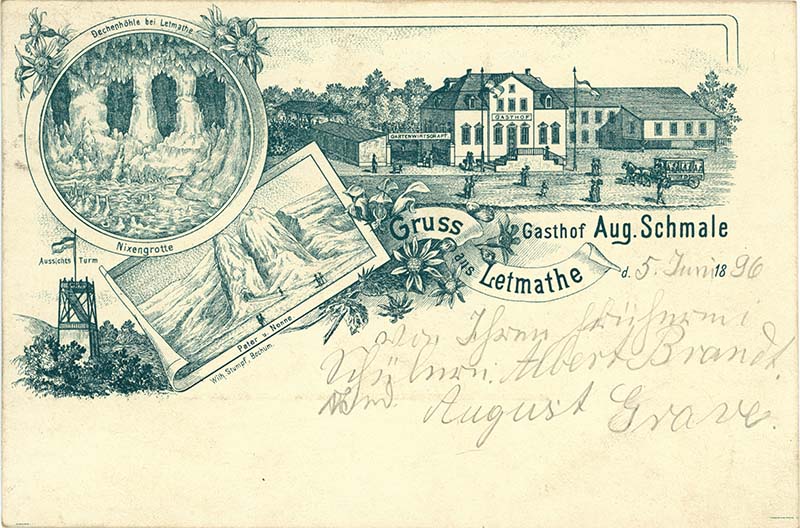 Dechenhöhle bei Letmathe
Nixengrotte
Aussichts Turm
Peter u. Nonne
Wilh. Stumpf, Bochum.
GASTHOF
GARTENWIRTSCHAFT
Gruss
aus
Letmathe
Gasthof Aug. Schmale
d. 5. Juni 1896
von Ihren früheren
Schülern: Albert Brandt.
und August Grave.